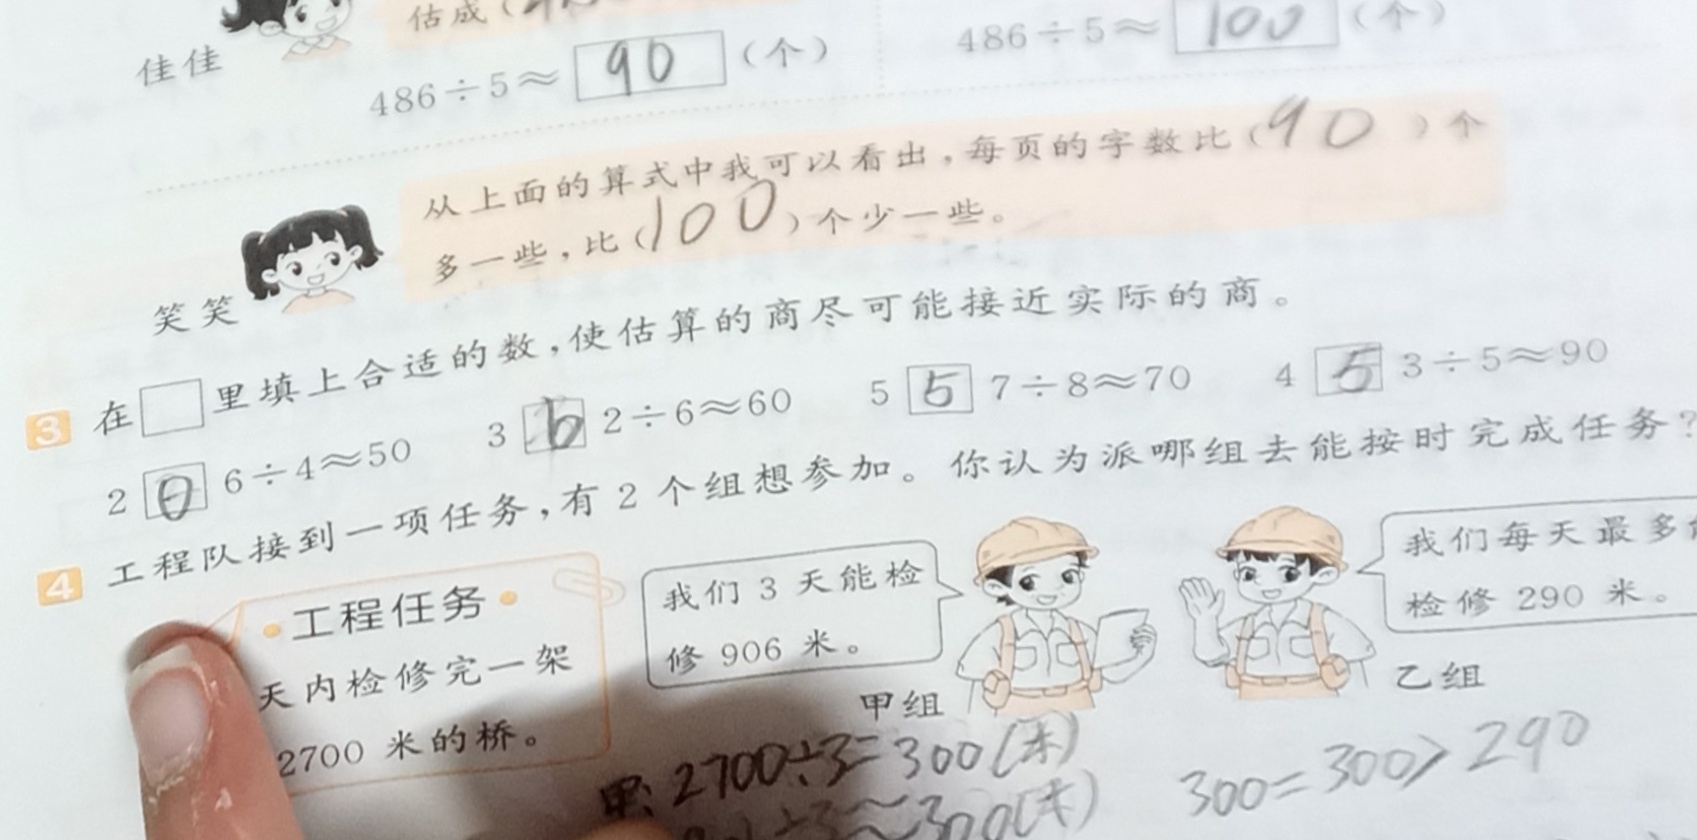 估成(
佳佳
486÷5≈ 90 (个)
486÷5≈ 100 (个)
从上面的算式中我可以看出,每页的字数比(90)个
多一些,比(100)个少一些。
笑笑
3 在□里填上合适的数,使估算的商尽可能接近实际的商。
2 0 6÷4≈50 3 6 2÷6≈60 5 5 7÷8≈70 4 5 3÷5≈90
4 工程队接到一项任务,有2个组想参加。你认为派哪组去能按时完成任务?
·工程任务·
天内检修完一架
2700米的桥。
我们3天能检
修906米。
甲组
我们每天最多
检修290米。
乙组
甲: 2700÷3=300(米)
÷3≈300(米)
300=300>290